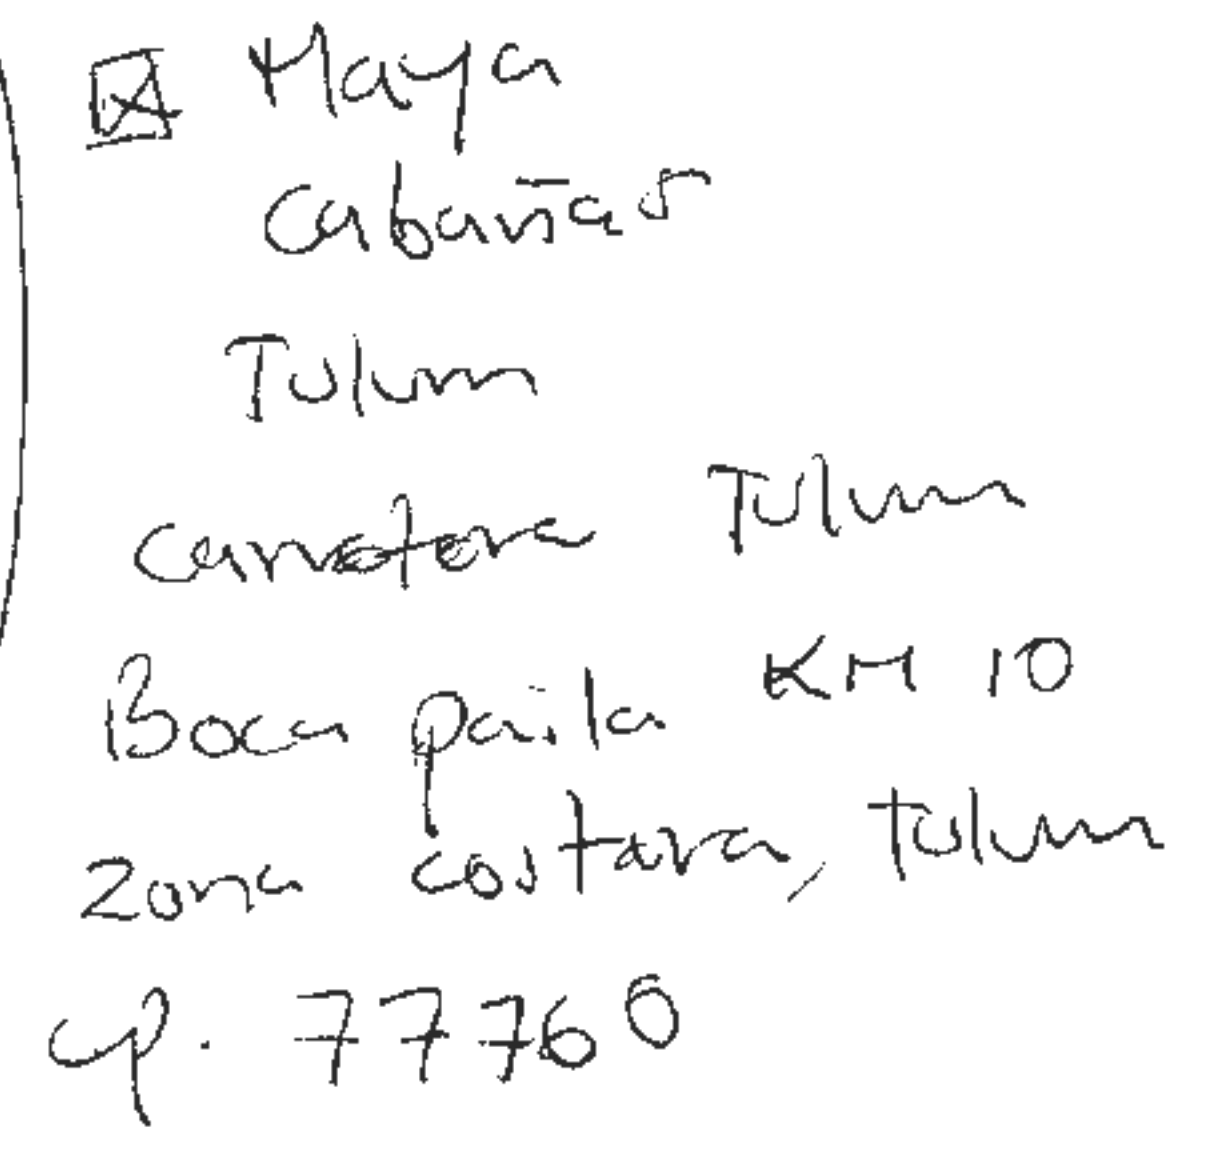 ☒ Maya
Cabañas
Tulum
Carretera Tulum
Boca paila KM 10
zona costara, Tulum
cp. 77760